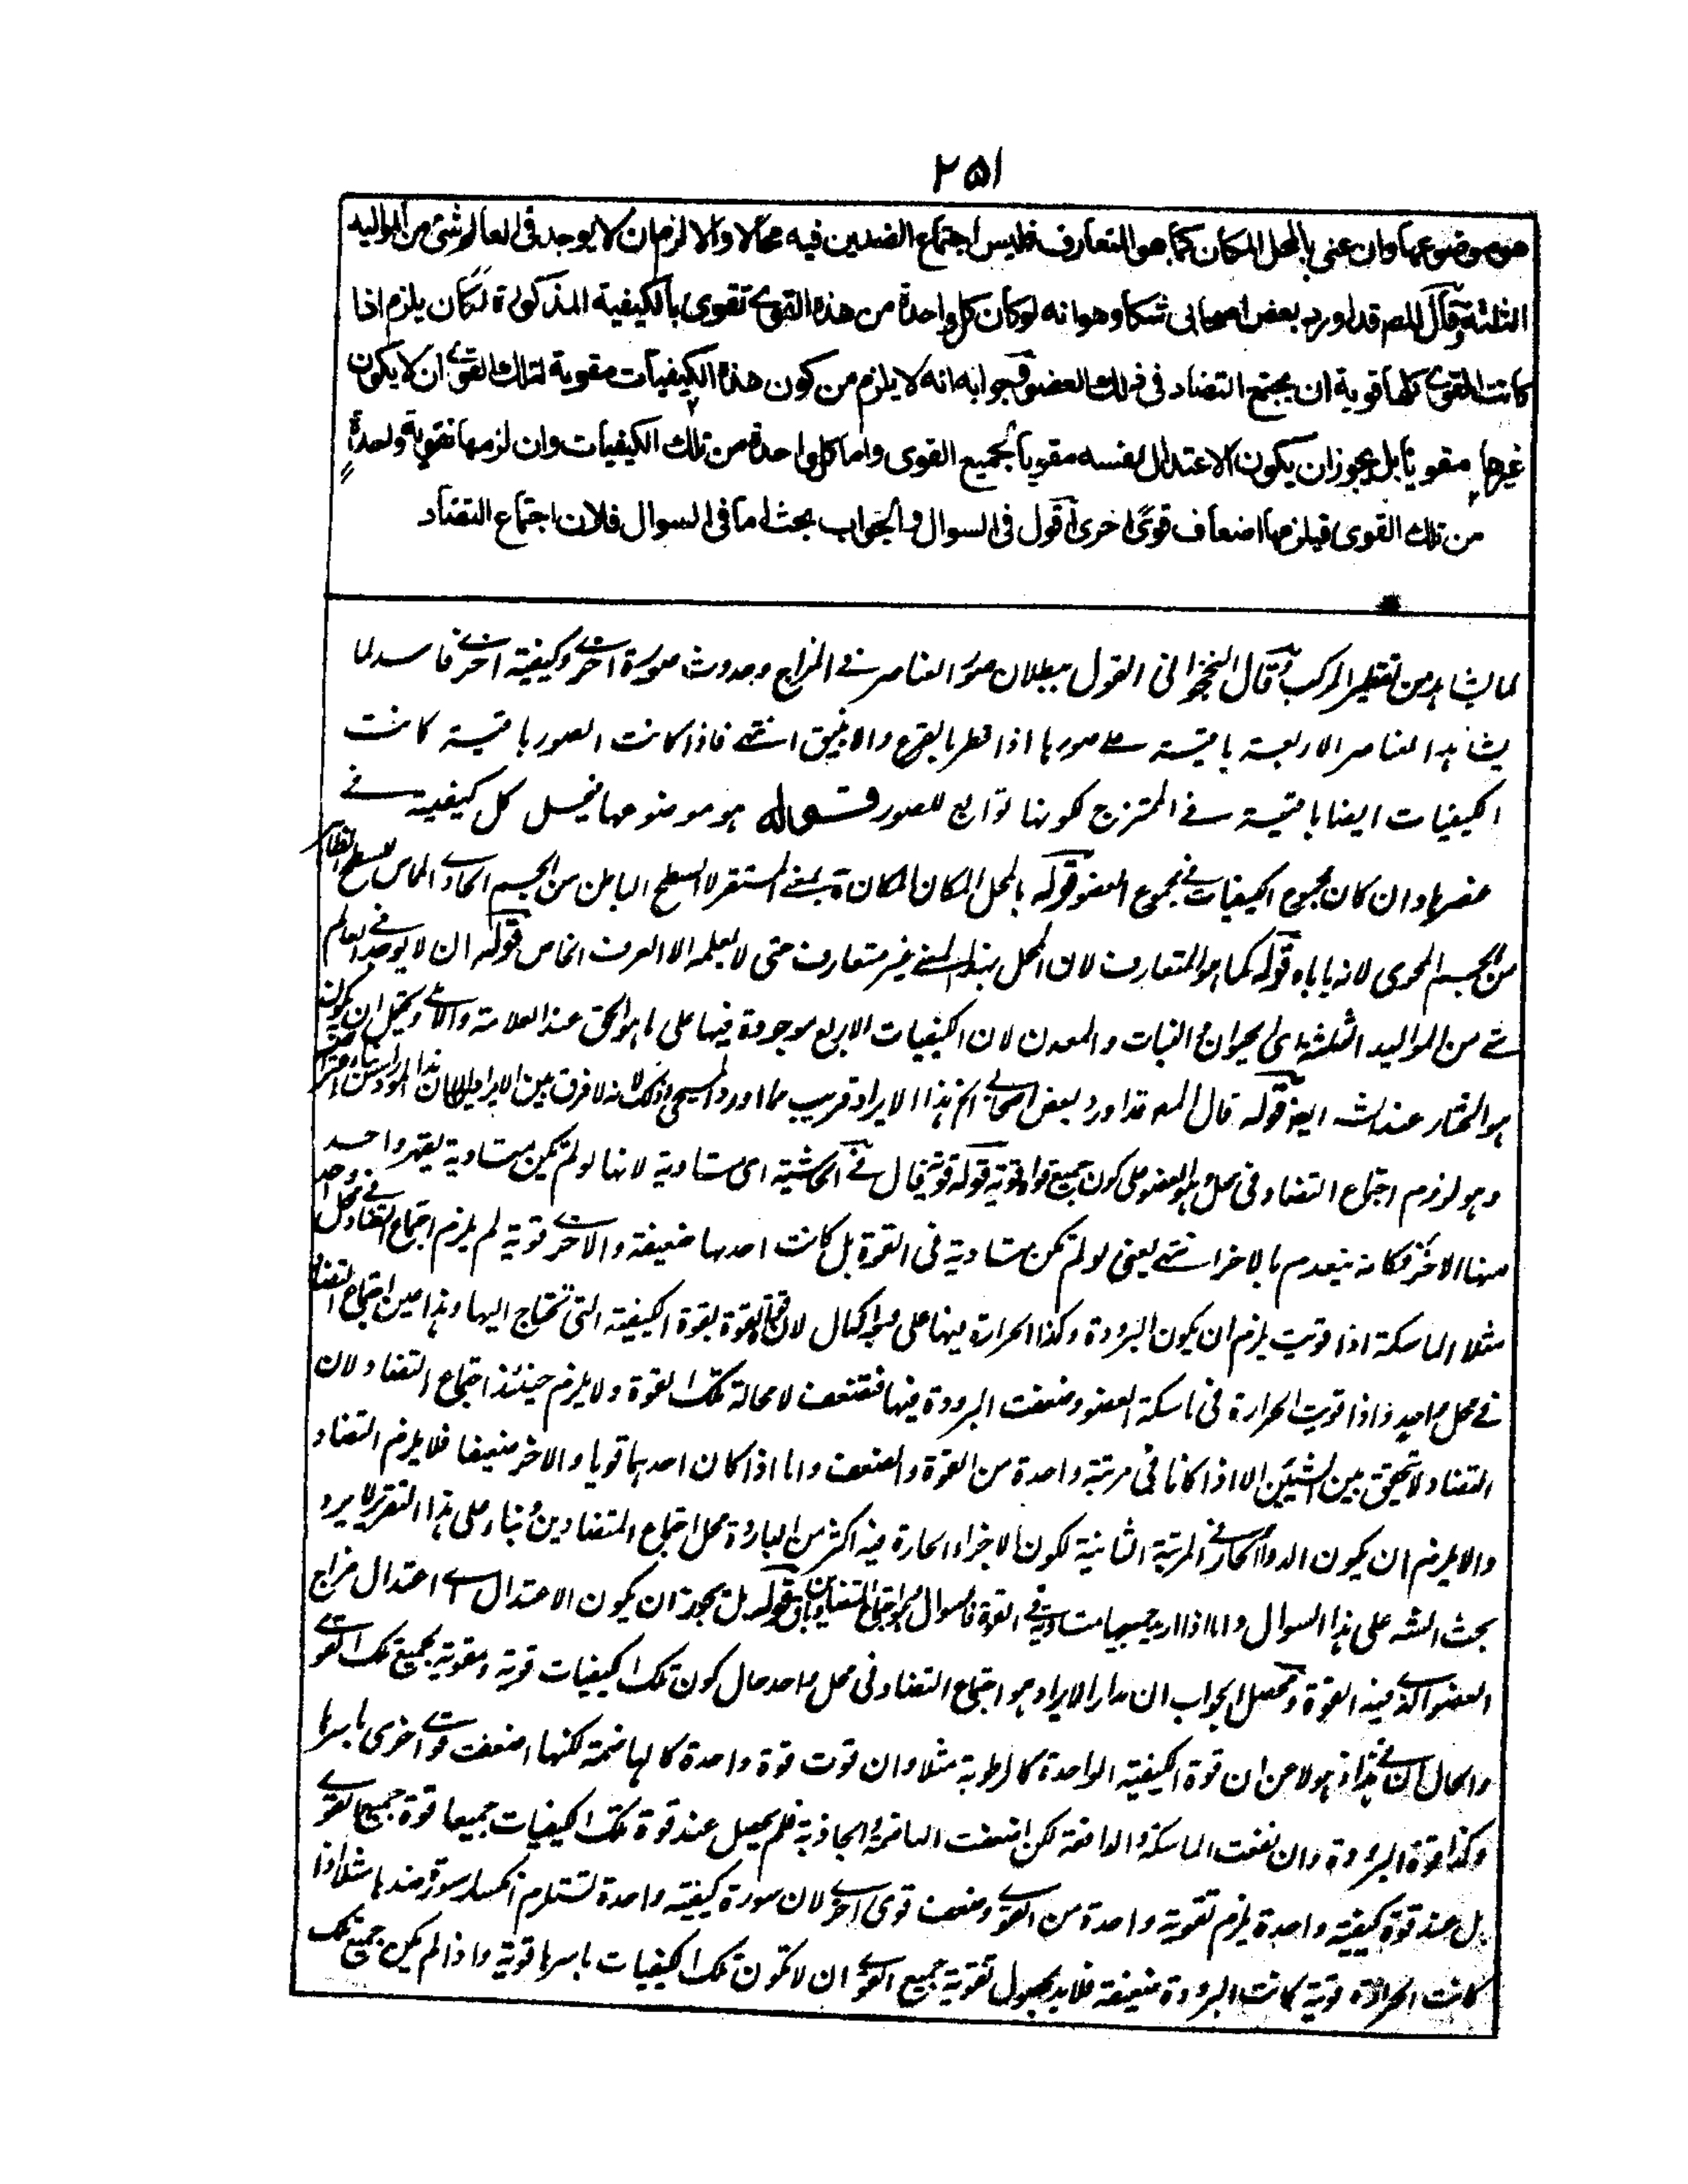 ۲۵۱
هو موضوعها وان عنی بالمحل المکان کما هو المتعارف فلیس اجتماع الضدین فیه محالا والا لزم ان لا یوجد فی العالم شئ من الموالید
الثلثة وقال المصـ قد اورد بعض اصحابی شکا وهو انه لو کان کل واحدة من هذه القوی تقوی بالکیفیة المذکورة لکان یلزم اذا
کانت القوی کلها قویة ان یجتمع التضاد فی ذلک العضو وجوابه انه لا یلزم من کون هذه الکیفیات مقویة لتلک القوی ان لا یکون
غیرها مقویا بل یجوز ان یکون الاعتدال لنفسه مقویا لجمیع القوی واما کل واحدة من تلک الکیفیات وان لزمها تقویة واحدة
من تلک القوی فیلزمها اضعاف قوی اخری اقول فی السوال والجواب بحث اما فی السوال فلان اجتماع التضاد
لما یشاهد من تقطیر المرکب وقال النخجوانی القول ببطلان صور العناصر فی المزاج وحدوث صورة اخری وکیفیة اخری فاسد لما
یشاهد العناصر الاربعة باقیة علی صورها اذا قطر بالقرع والانبیق انتهی فاذا کانت الصور باقیة کانت
الکیفیات ایضا باقیة فی الممتزج کونها توابع للصور قوله هو موضوعها فیحل کل کیفیة فی
عنصرها وان کان مجموع الکیفیات فی مجموع العضو قوله بالمحل المکان المکان بمعنی المستقر لا السطح الباطن من الجسم الحاوی المماس للسطح الظاهر
من الجسم المحوی لانه یاباه قوله کما هو المتعارف لان المحل بهذا المعنی غیر متعارف حتی لا یعلمه الا العرف الخاص قوله ان لا یوجد فی العالم
شئ من الموالید الثلثة ای الحیوان والنبات والمعدن لان الکیفیات الاربع موجودة فیها علی ما هو الحق عند العلامة والآملی ویحتمل ان یکون
هو المختار عند الشـ ایضا قوله قال المصـ قد اورد بعض اصحابی الخ هذا الایراد قریب مما اورد المسیحی وذلک لانه لا فرق بین الایرادین
وهو لزوم اجتماع التضاد فی محل وهو العضو علی کون جمیع قواه قویة قوله قویة قال فی الحاشیة ای متساویة لانها لو لم تکن متساویة یقهر واحد
منها الاخر فکانه ینعدم بالاخر انتهی یعنی لو لم تکن متساویة فی القوة بل کانت احدها ضعیفة والاخری قویة لم یلزم اجتماع التضاد فی محل واحد
مثلا الماسکة اذا قویت یلزم ان یکون البرودة وکذا الحرارة فیها علی وجه الکمال لان قوة القوة بقوة الکیفیة التی تحتاج الیها وهذا عین اجتماع التضاد
فی محل واحد واذا قویت الحرارة فی ماسکة العضو وضعفت البرودة فیها فتضعف لا محالة تلک القوة ولا یلزم حینئذ اجتماع التضاد لان
التضاد لا یتحقق بین الشیئین الا اذا کانا فی مرتبة واحدة من القوة والضعف واما اذا کان احدهما قویا والاخر ضعیفا فلا یلزم التضاد
والا یلزم ان یکون الدواء الحار فی المرتبة الثانیة لکون الاجزاء الحارة فیه اکثر من الباردة محل اجتماع المتضادین وبناء علی هذا التقریر لا یرد
بحث الشـ علی هذا السوال واما اذا ارید جمیعها متساویة فی القوة فالسوال قوله بل یجوز ان یکون الاعتدال ای اعتدال مزاج
العضو الذی فیه القوة ومحصل الجواب ان مدار الایراد هو اجتماع التضاد فی محل واحد حال کون تلک الکیفیات قویة ومقویة لجمیع تلک القوی
والحال ان من قوة الکیفیة الواحدة کالرطوبة مثلا وان قوت قوة واحدة کالهاضمة لکنها اضعفت قوی اخری باسرها
وکذا قوة البرودة وان نفعت الماسکة والدافعة لکن اضعفت الهاضمة والجاذبة فلم یحصل عند قوة تلک الکیفیات جمیعا قوة جمیع القوی
بل عند قوة کیفیة واحدة یلزم تقویة واحدة من القوی وضعف قوی اخری لان سورة کیفیة واحدة تستلزم انکسار سورة ضدها مثلا اذا
کانت الحرارة قویة کانت البرودة ضعیفة فلا بد لحصول تقویة جمیع القوی ان لا تکون تلک الکیفیات باسرها قویة واذا لم یکن جمیع تلک